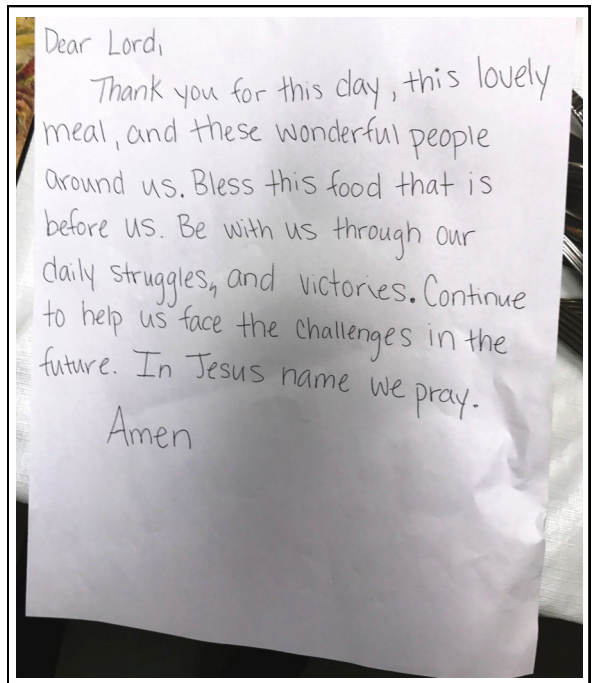 Dear Lord,
Thank you for this day, this lovely
meal, and these wonderful people
around us. Bless this food that is
before us. Be with us through our
daily struggles, and victories. Continue
to help us face the challenges in the
future. In Jesus name we pray.
Amen